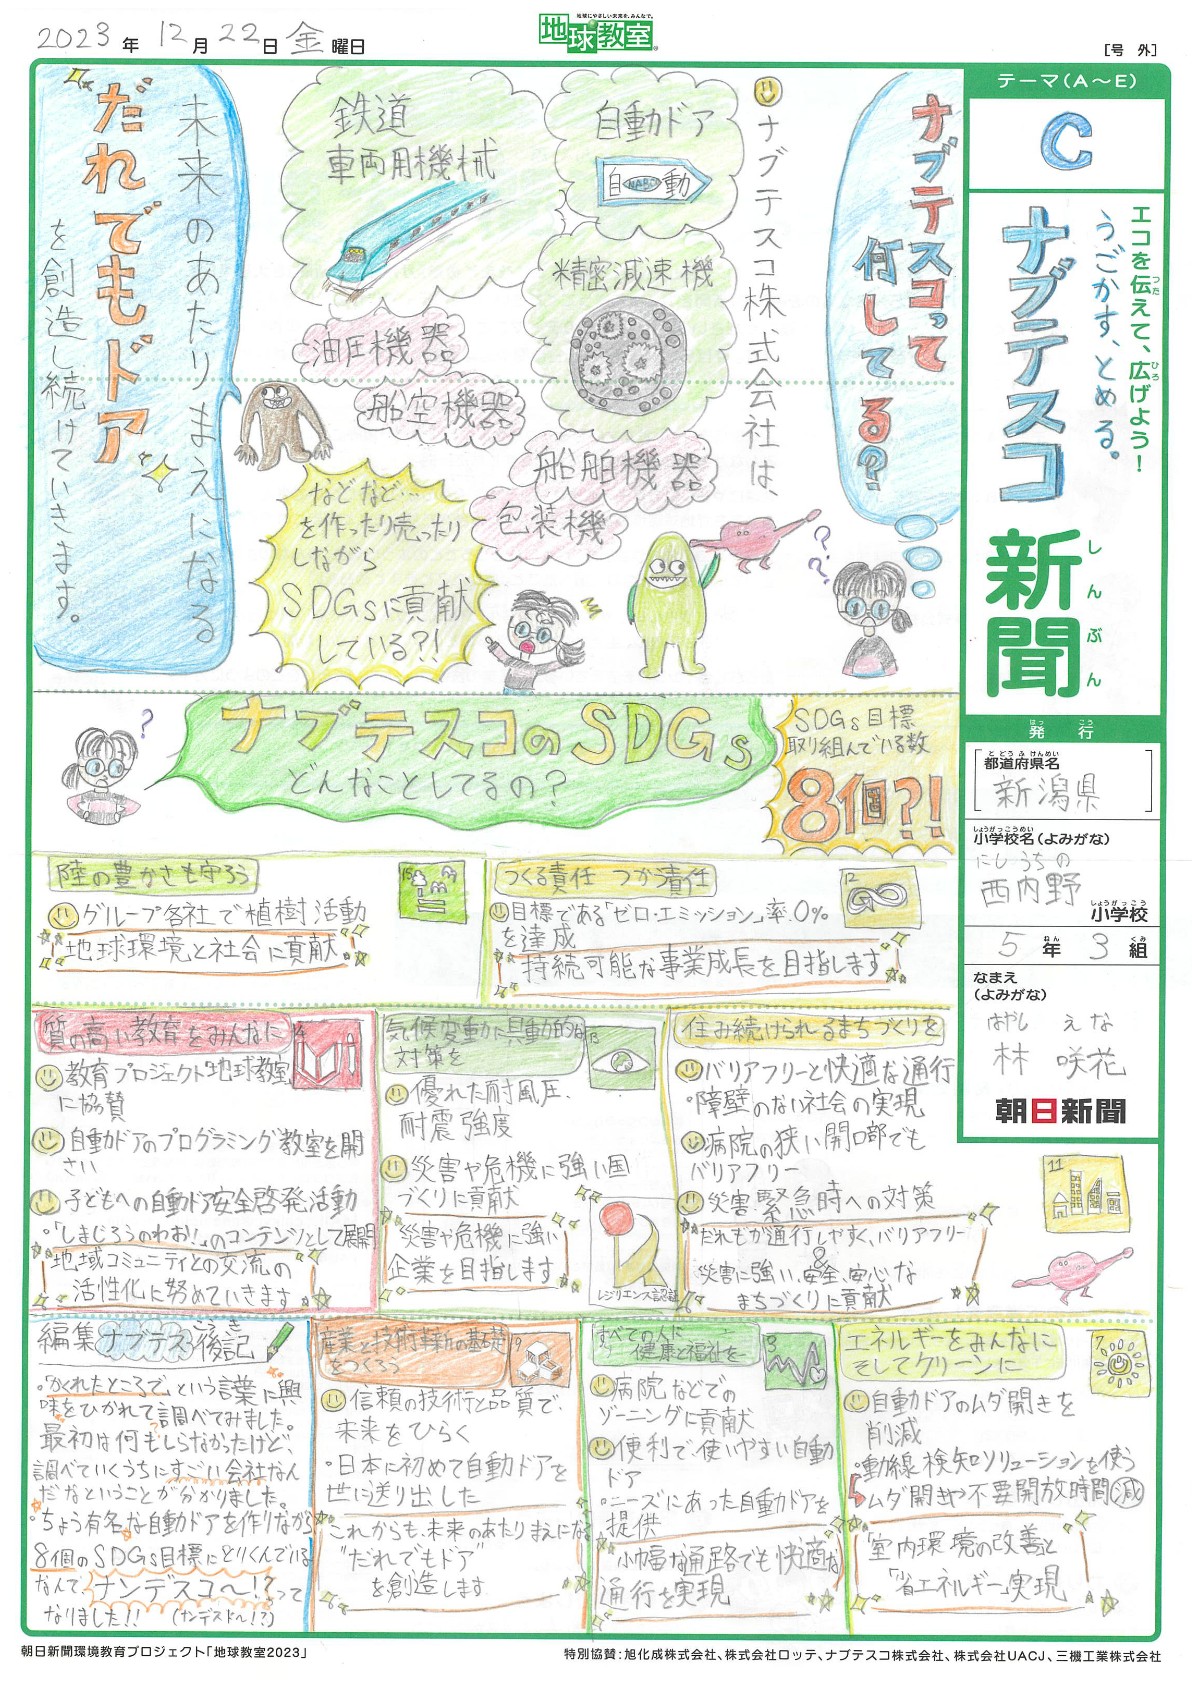 2023年 12月 22日 金曜日
地球にやさしい未来を、みんなで。
地球教室
[号 外]
テーマ(A～E)
C
エコを伝えて、広げよう!
つた
ひろ
うごかす、とめる。
ナブテスコ
新聞
しんぶん
発行
はっ こう
都道府県名
と どう ふ けんめい
新潟県
小学校名(よみがな)
しょうがっこうめい
にし うち の
西内野
小学校
しょうがっこう
5年 3組
ねん くみ
なまえ
(よみがな)
はやし えな
林 咲花
朝日新聞
ナブテスコって
何してる?
ナブテスコ株式会社は、
自動ドア
自 NABCO 動
鉄道
車両用機械
精密減速機
油圧機器
船空機器
船舶機器
包装機
などなど…
を作ったり売ったり
しながら
SDGsに貢献
している?!
? ?
未来のあたりまえになる
だれでもドア
を創造し続けていきます。
?
ナブテスコのSDGs
どんなことしてるの?
SDGs目標
取り組んでいる数
8個?!
陸の豊かさも守ろう
15
グループ各社で植樹活動
地球環境と社会に貢献
つくる責任 つかう責任
12
目標である「ゼロ・エミッション」率0%
を達成
持続可能な事業成長を目指します
質の高い教育をみんなに
4
教育プロジェクト地球教室
に協賛
自動ドアのプログラミング教室を開
さい
子どもへの自動ドア安全啓発活動
・「しまじろうのわお!」のコンテンツとして展開
地域コミュニティとの交流の
活性化に努めていきます
気候変動に具動的な
対策を
13
優れた耐風圧、
耐震強度
災害や危機に強い国
づくりに貢献
災害や危機に強い
企業を目指します
レジリエンス認証
住み続けられるまちづくりを
バリアフリーと快適な通行
・障壁のない社会の実現
病院の狭い開口部でも
バリアフリー
災害・緊急時への対策
だれもが通行しやすく、バリアフリー
&
災害に強い、安全、安心な
まちづくりに貢献
11
編集ナブテス後記
こうき
・「かくれたところで」という言葉に興
味をひかれて調べてみました。
最初は何もしらなかったけど、
調べていくうちにすごい会社なん
だなということが分かりました。
・ちょう有名な自動ドアを作りながら
8個のSDGs目標にとりくんでいる
なんて、ナンデスコ～!?って
なりました!! (ナンデスド～!?)
産業と技術革新の基礎
をつくろう
9
信頼の技術と品質で、
未来をひらく
・日本に初めて自動ドアを
世に送り出した
これからも、未来のあたりまえになる
"だれでもドア"
を創造します
すべての人に
健康と福祉を
3
病院などでの
ゾーニングに貢献
便利で使いやすい自動
ドア
・ニーズにあった自動ドアを
提供
小幅な通路でも快適な
通行を実現
エネルギーをみんなに
そしてクリーンに
7
自動ドアのムダ開きを
削減
・動線検知ソリューションを使う
ムダ開きや不要開放時間減
「室内環境の改善」と
「省エネルギー」実現
朝日新聞環境教育プロジェクト「地球教室2023」
特別協賛:旭化成株式会社、株式会社ロッテ、ナブテスコ株式会社、株式会社UACJ、三機工業株式会社